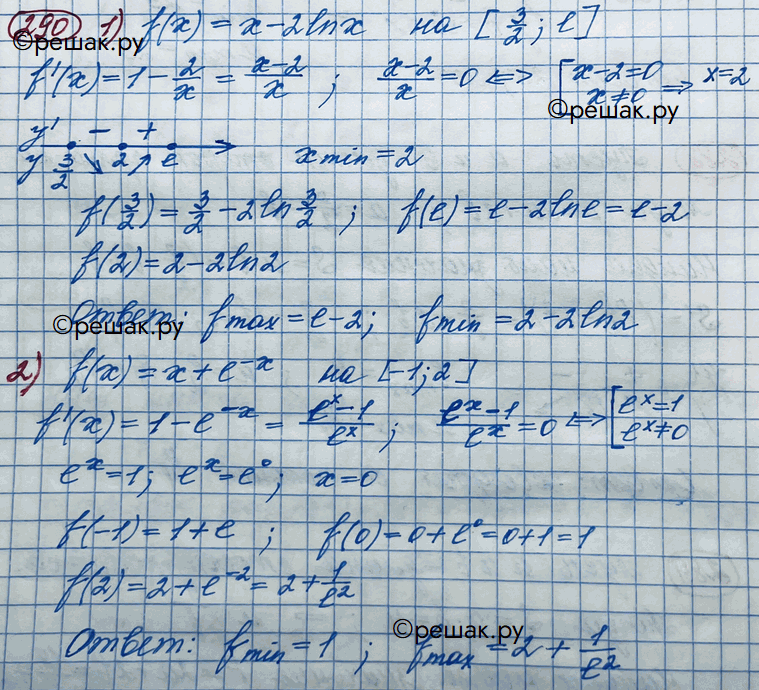 290 1) f(x) = x - 2lnx на [3/2; e]
©решак.ру
f'(x) = 1 - 2/x = (x-2)/x ; (x-2)/x = 0 <=> [x-2=0 x≠0 => x=2
©решак.ру
y' - +
y 3/2 ↘ 2 ↗ e xmin = 2
f(3/2) = 3/2 - 2ln 3/2 ; f(e) = e - 2lne = e - 2
f(2) = 2 - 2ln2
Ответ: fmax = e - 2; fmin = 2 - 2ln2
©решак.ру
2) f(x) = x + e^-x на [-1; 2]
f'(x) = 1 - e^-x = (e^x - 1)/e^x ; (e^x - 1)/e^x = 0 <=> [e^x = 1 e^x ≠ 0
e^x = 1; e^x = e^0; x = 0
f(-1) = 1 + e ; f(0) = 0 + e^0 = 0 + 1 = 1
f(2) = 2 + e^-2 = 2 + 1/e^2
©решак.ру
Ответ: fmin = 1 ; fmax = 2 + 1/e^2